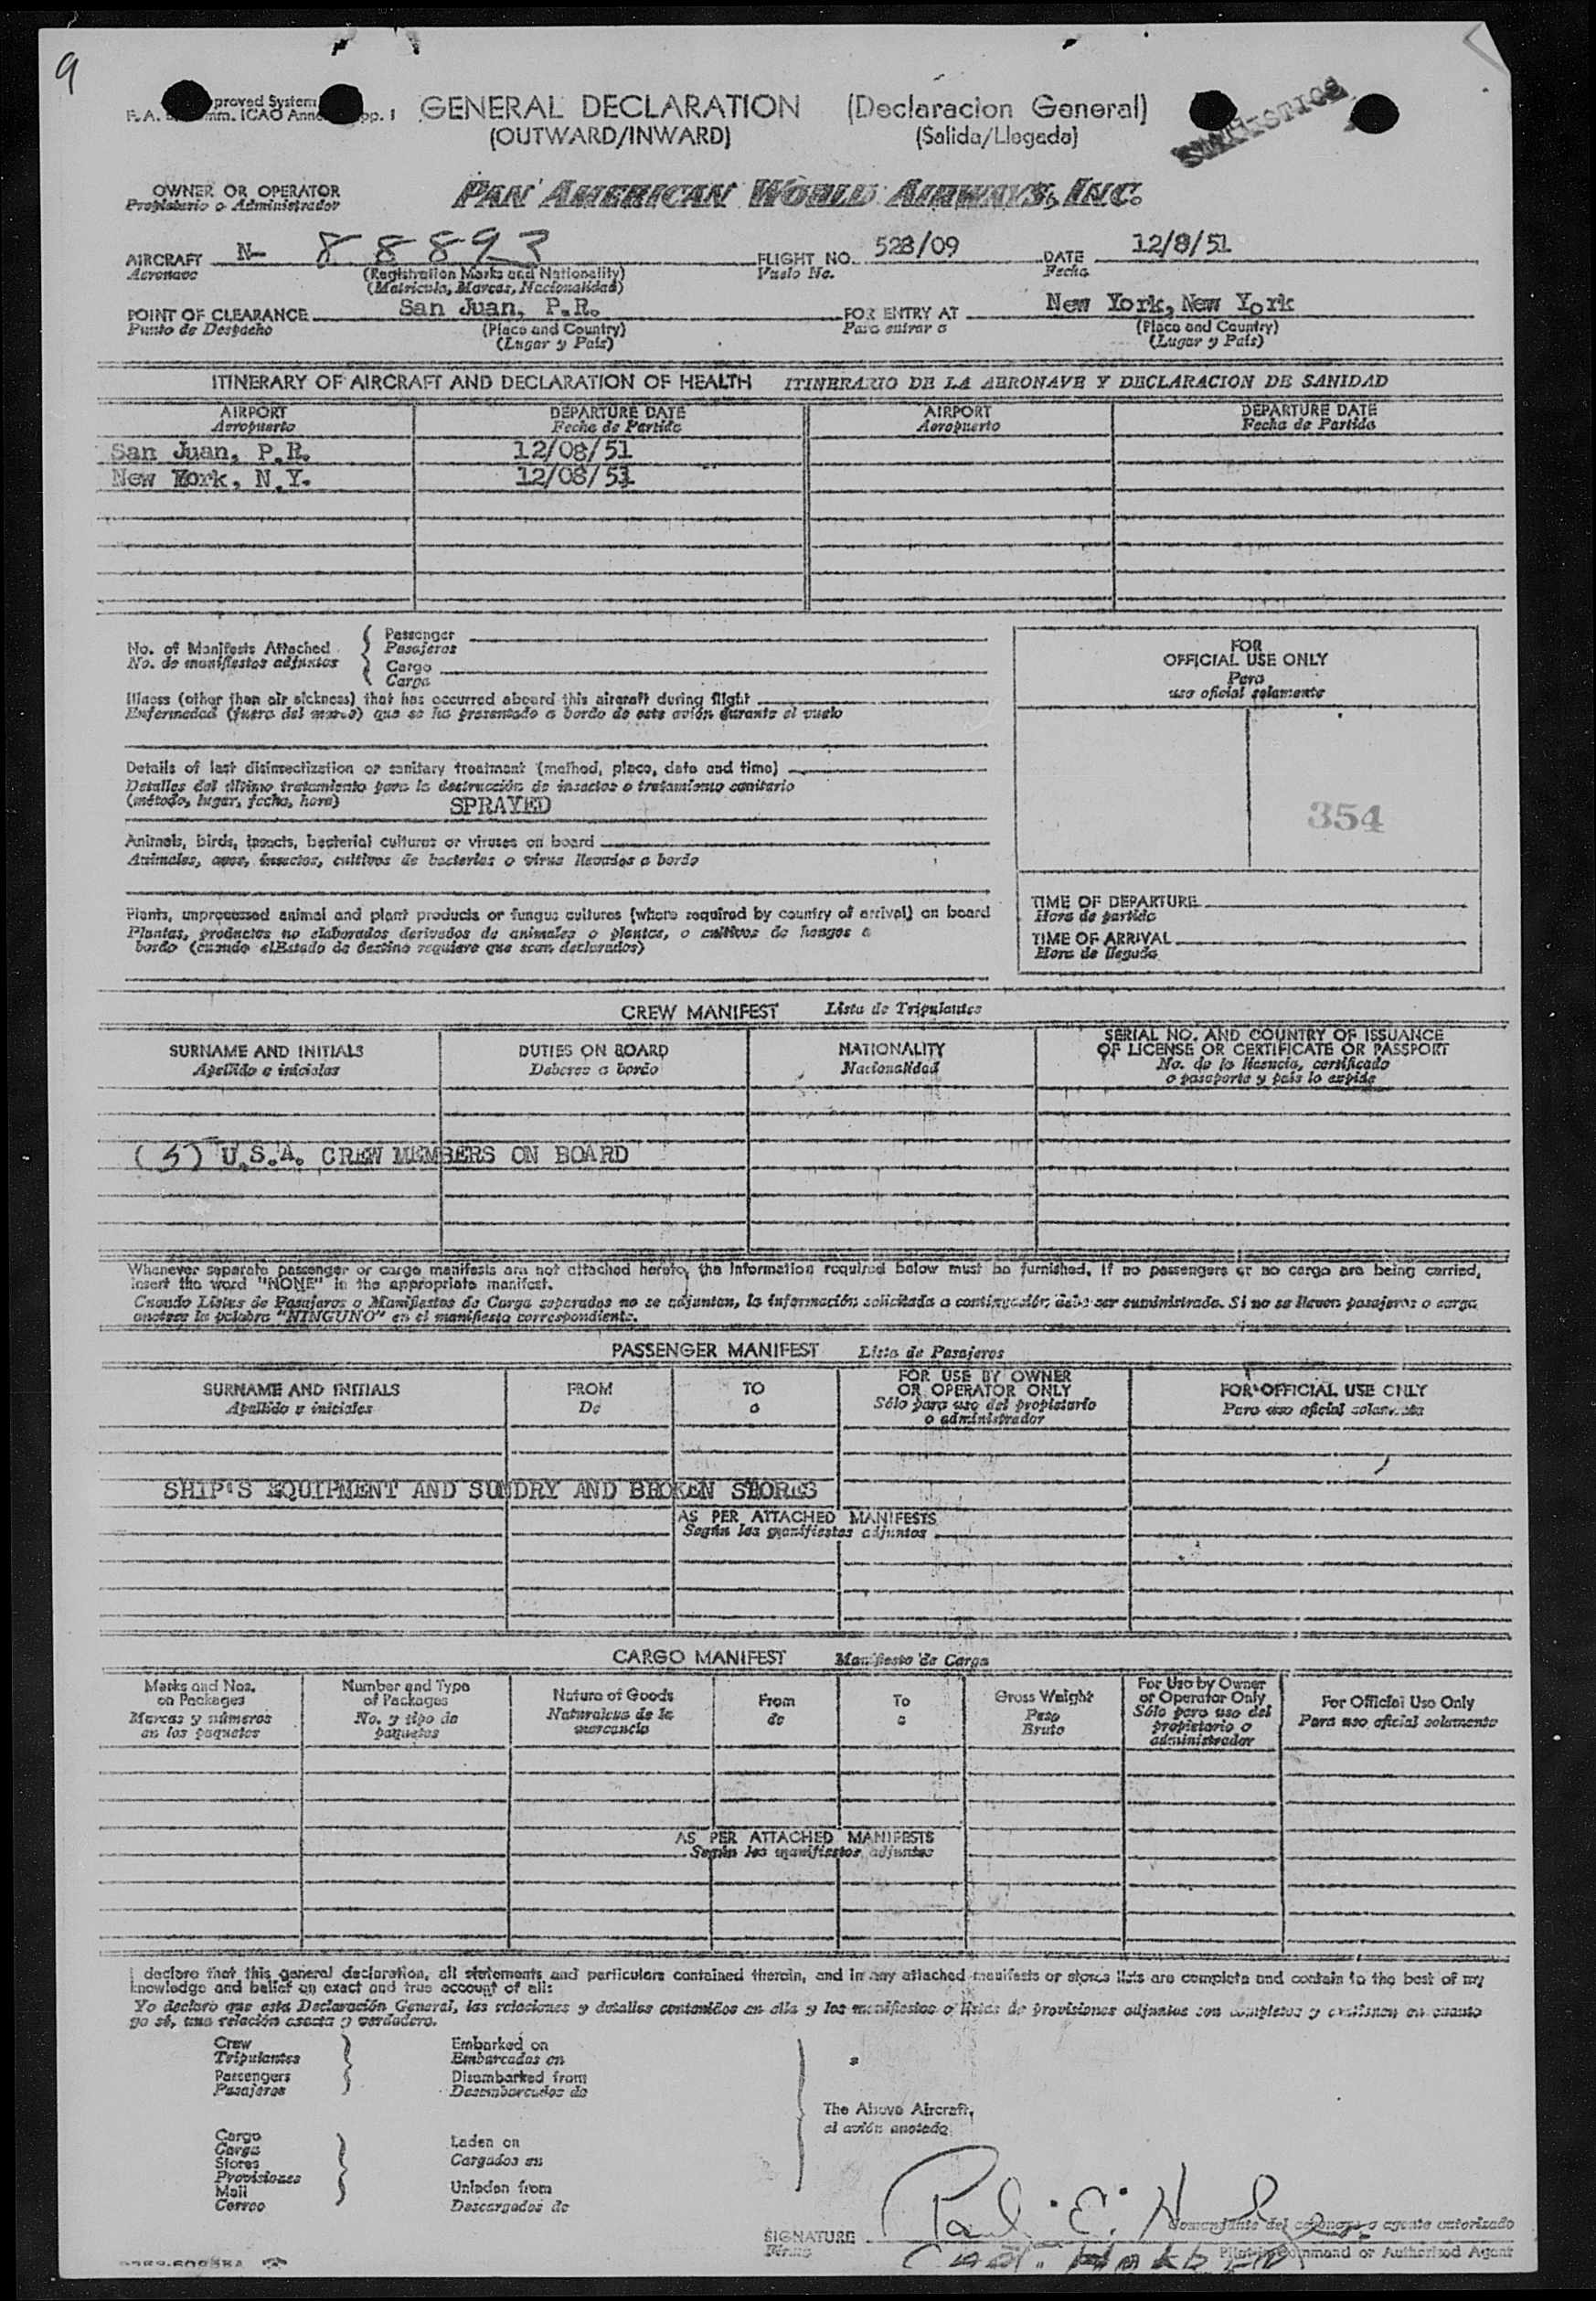 9
proved System
GENERAL DECLARATION (Declaracion General)
(OUTWARD/INWARD) (Salida/Llegada)
STATISTICS
OWNER OR OPERATOR PAN AMERICAN WORLD AIRWAYS, INC.
Propietario o Administrador
AIRCRAFT N- 88893 FLIGHT NO. 528/09 DATE 12/8/51
Aeronave (Registration Marks and Nationality) Vuelo No. Fecha
(Matricula, Marcas, Nacionalidad)
POINT OF CLEARANCE San Juan, P.R. FOR ENTRY AT New York, New York
Punto de Despacho (Place and Country) Para entrar a (Place and Country)
(Lugar y País) (Lugar y País)
ITINERARY OF AIRCRAFT AND DECLARATION OF HEALTH ITINERARIO DE LA AERONAVE Y DECLARACION DE SANIDAD
AIRPORT DEPARTURE DATE AIRPORT DEPARTURE DATE
Aeropuerto Fecha de Partida Aeropuerto Fecha de Partida
San Juan, P.R. 12/08/51
New York, N.Y. 12/08/51
No. of Manifests Attached
No. de manifiestos adjuntos
Passenger
Pasajeros
Cargo
Carga
Illness (other than air sickness) that has occurred aboard this aircraft during flight
Enfermedad (fuera del mareo) que se ha presentado a bordo de este avión durante el vuelo
Details of last disinsectization or sanitary treatment (method, place, date and time)
Detalles del último tratamiento para la destrucción de insectos o tratamiento sanitario
(método, lugar, fecha, hora) SPRAYED
Animals, birds, insects, bacterial cultures or viruses on board
Animales, aves, insectos, cultivos de bacterias o virus llevados a bordo
Plants, unprocessed animal and plant products or fungus cultures (where required by country of arrival) on board
Plantas, productos no elaborados derivados de animales o plantas, o cultivos de hongos a
bordo (cuando el Estado de destino requiere que sean declarados)
FOR
OFFICIAL USE ONLY
Para
uso oficial solamente
354
TIME OF DEPARTURE
Hora de partida
TIME OF ARRIVAL
Hora de llegada
CREW MANIFEST Lista de Tripulantes
SURNAME AND INITIALS DUTIES ON BOARD NATIONALITY SERIAL NO. AND COUNTRY OF ISSUANCE
OF LICENSE OR CERTIFICATE OR PASSPORT
Apellido e iniciales Deberes a bordo Nacionalidad No. de la licencia, certificado
o pasaporte y país lo expide
(5) U.S.A. CREW MEMBERS ON BOARD
Whenever separate passenger or cargo manifests are not attached hereto, the information required below must be furnished. If no passengers or no cargo are being carried,
insert the word "NONE" in the appropriate manifest.
Cuando Listas de Pasajeros o Manifiestos de Carga separados no se adjuntan, la información solicitada a continuación debe ser suministrada. Si no se llevan pasajeros o carga
anotese la palabra "NINGUNO" en el manifiesto correspondiente.
PASSENGER MANIFEST Lista de Pasajeros
SURNAME AND INITIALS FROM TO FOR USE BY OWNER
OR OPERATOR ONLY FOR OFFICIAL USE ONLY
Apellido e iniciales De a Sólo para uso del propietario
o administrador Para uso oficial solamente
SHIP'S EQUIPMENT AND SUNDRY AND BROKEN STORES
AS PER ATTACHED MANIFESTS
Según los manifiestos adjuntos
CARGO MANIFEST Manifiesto de Carga
Marks and Nos.
on Packages
Marcas y números
en los paquetes
Number and Type
of Packages
No. y tipo de
paquetes
Nature of Goods
Naturaleza de la
mercancía
From
de
To
a
Gross Weight
Peso
Bruto
For Use by Owner
or Operator Only
Sólo para uso del
propietario o
administrador
For Official Use Only
Para uso oficial solamente
AS PER ATTACHED MANIFESTS
Según los manifiestos adjuntos
I declare that this general declaration, all statements and particulars contained therein, and in any attached manifests or stores lists are complete and contain to the best of my
knowledge and belief an exact and true account of all:
Yo declaro que esta Declaración General, las relaciones y detalles contenidos en ella y los manifiestos o listas de provisiones adjuntos son completos y contienen en cuanto
yo sé, una relación exacta y verdadera.
Crew Embarked on
Tripulantes Embarcados en
Passengers Disembarked from
Pasajeros Desembarcados de
The Above Aircraft,
el avión anotado
Cargo
Carga Laden on
Stores Cargados en
Provisiones
Mail Unladen from
Correo Descargados de
SIGNATURE Paul E.
Firma
Comandante del aeronave o agente autorizado
Pilot in Command or Authorized Agent